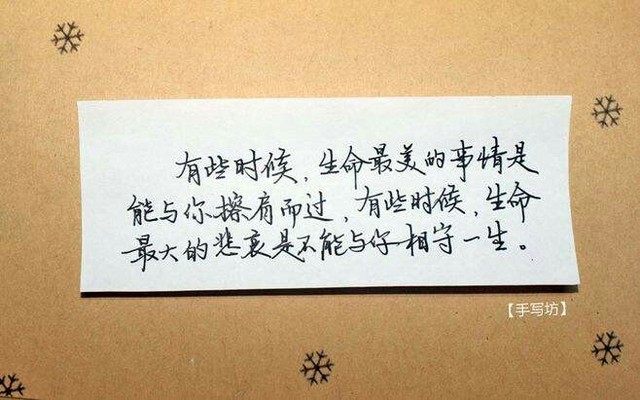 有些时候，生命最美的事情是
能与你擦肩而过，有些时候，生命
最大的悲哀是不能与你相守一生。
【手写坊】